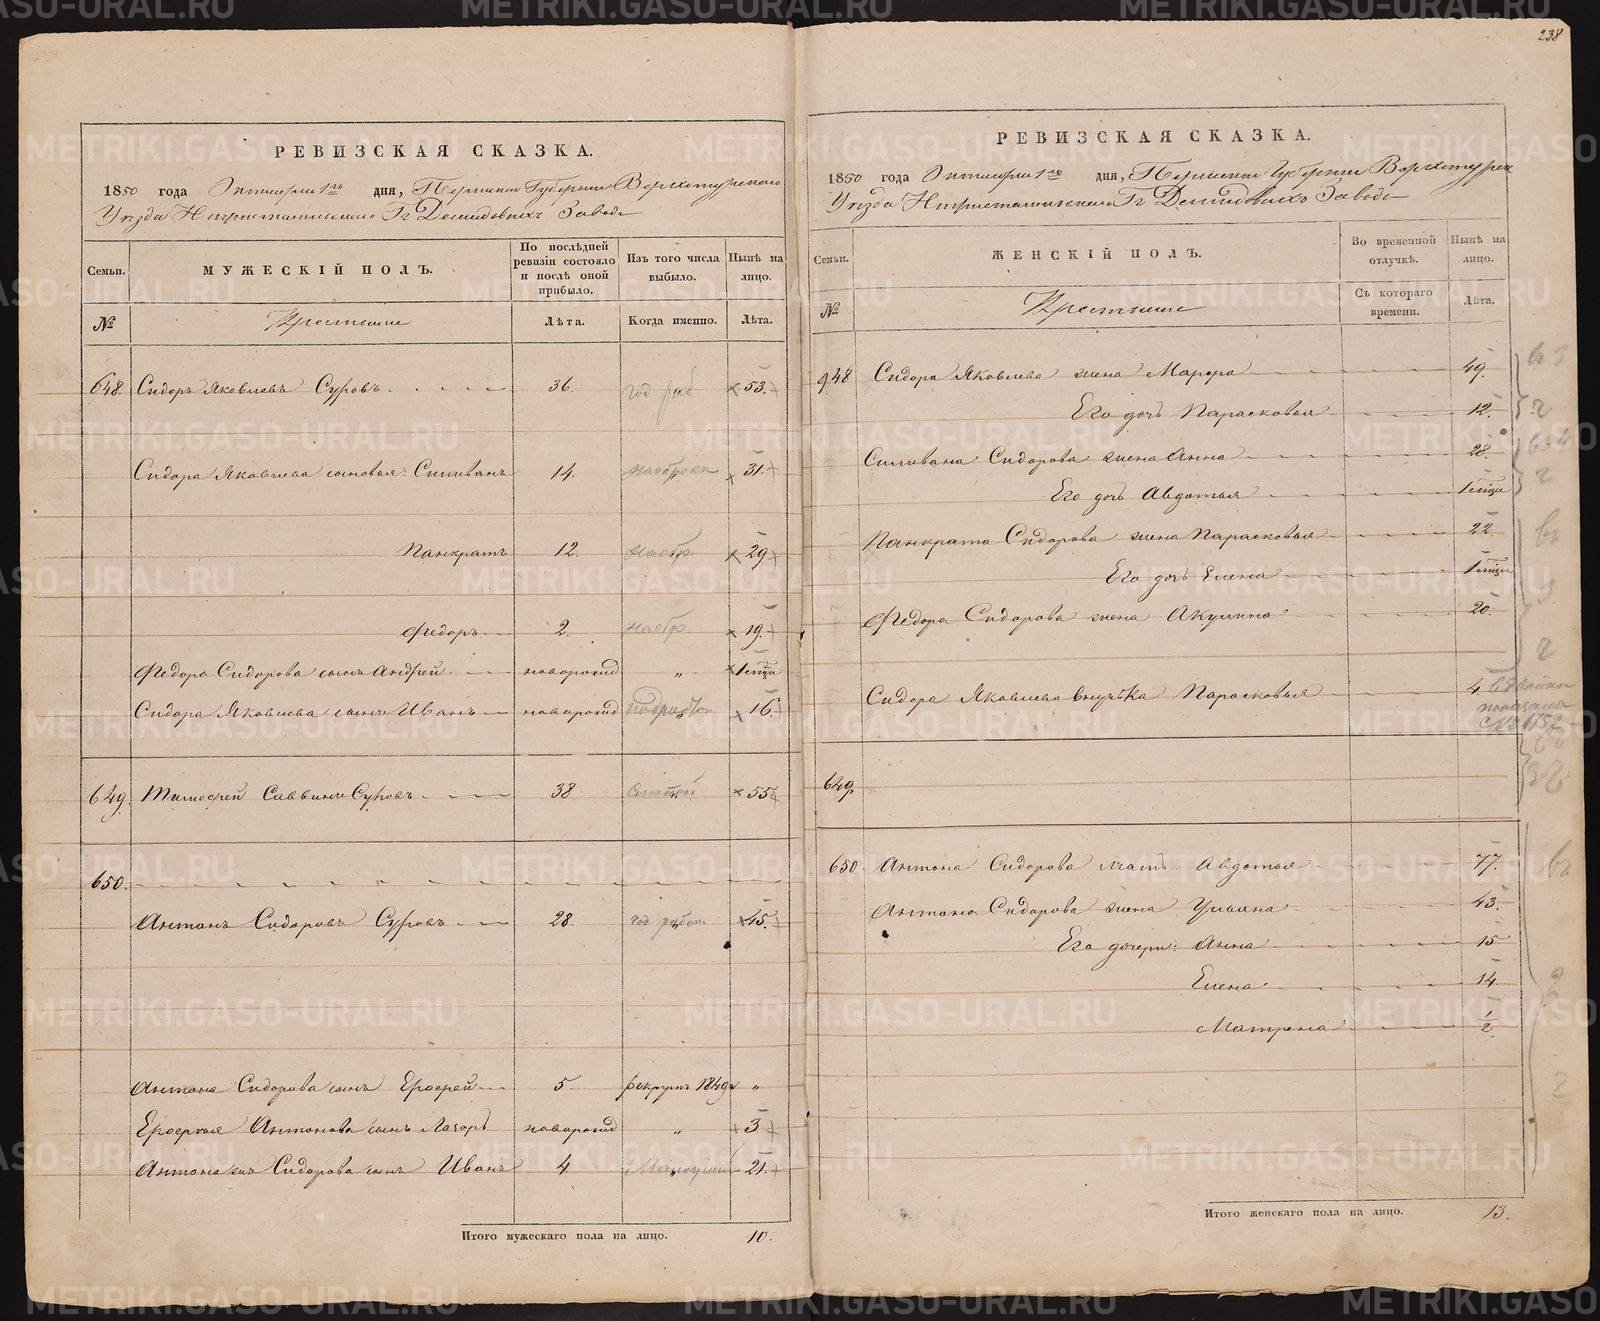 238
РЕВИЗСКАЯ СКАЗКА.
1850 года Октября 1го дня, Пермской Губернии Верхотурского
Уезда Нижнетагильского Гг Демидовыхъ Завода
Семьи.
МУЖЕСКІЙ ПОЛЪ.
По послѣдней ревизіи состояло и послѣ оной прибыло.
Изъ того числа выбыло.
Нынѣ на лицо.
№
Крестьяне
Лѣта.
Когда именно.
Лѣта.
648. Сидоръ Яковлевъ Суровъ 36. год раб 53.
Сидора Яковлева сыновья: Силиванъ 14. 31.
Панкратъ 12. 29
Федоръ 2. 19.
Федора Сидорова сынъ Андрей новорожд „ 1 мца
Сидора Яковлева сынъ Иванъ новорожд „ 16.
649. Тимофей Саввинъ Суровъ 38 55
650.
Антонъ Сидоровъ Суровъ 28. год работ 45.
Антона Сидорова сынъ Ерофей 5 рекрутъ 1849 „
Ерофея Антонова сынъ Лазарь новорожд „ 3
Антона же Сидорова сынъ Иванъ 4 21.
Итого мужескаго пола на лицо. 10.
РЕВИЗСКАЯ СКАЗКА.
1850 года Октября 1го дня, Пермской Губернии Верхотурск
Уезда Нижнетагильского Гг Демидовыхъ Завода
Семьи.
ЖЕНСКІЙ ПОЛЪ.
Во временной отлучкѣ.
Нынѣ на лицо.
№
Крестьяне
Съ котораго времени.
Лѣта.
948 Сидора Яковлева жена Марфа 49.
Его дочь Парасковья 12.
Силивана Сидорова жена Анна 28.
Его дочь Авдотья 1 мца
Панкрата Сидорова жена Парасковья 22.
Его дочь Елена 1 мца
Федора Сидорова жена Акулина 20.
Сидора Яковлева внучька Парасковья 4.
показана
649.
650. Антона Сидорова мать Авдотья 77.
Антона Сидорова жена Ульяна 43.
Его дочери: Анна 15
Елена 14
Матрена 1/2
Итого женскаго пола на лицо. 13.
METRIKI.GASO-URAL.RU